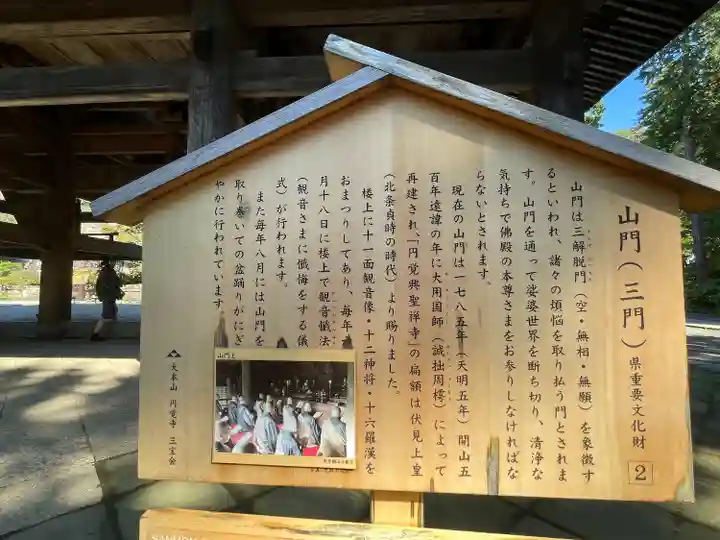 山門(三門) 県重要文化財 2
山門は三解脱門(空・無相・無願)を象徴す
るといわれ、諸々の煩悩を取り払う門とされま
す。山門を通って娑婆世界を断ち切り、清浄な
気持ちで佛殿の本尊さまをお参りしなければな
らないとされます。
現在の山門は一七八五年(天明五年)開山五
百年遠諱の年に大用国師(誠拙周樗)によって
再建され、「円覚興聖禅寺」の扁額は伏見上皇
(北条貞時の時代)より賜りました。
楼上に十一面観音像・十二神将・十六羅漢を
おまつりしてあり、毎年
月十八日に楼上で観音懺法
(観音さまに懺悔をする儀
式)が行われます。
また毎年八月には山門を
取り巻いての盆踊りがにぎ
やかに行われています。
山門上
大本山 円覚寺 三宝会